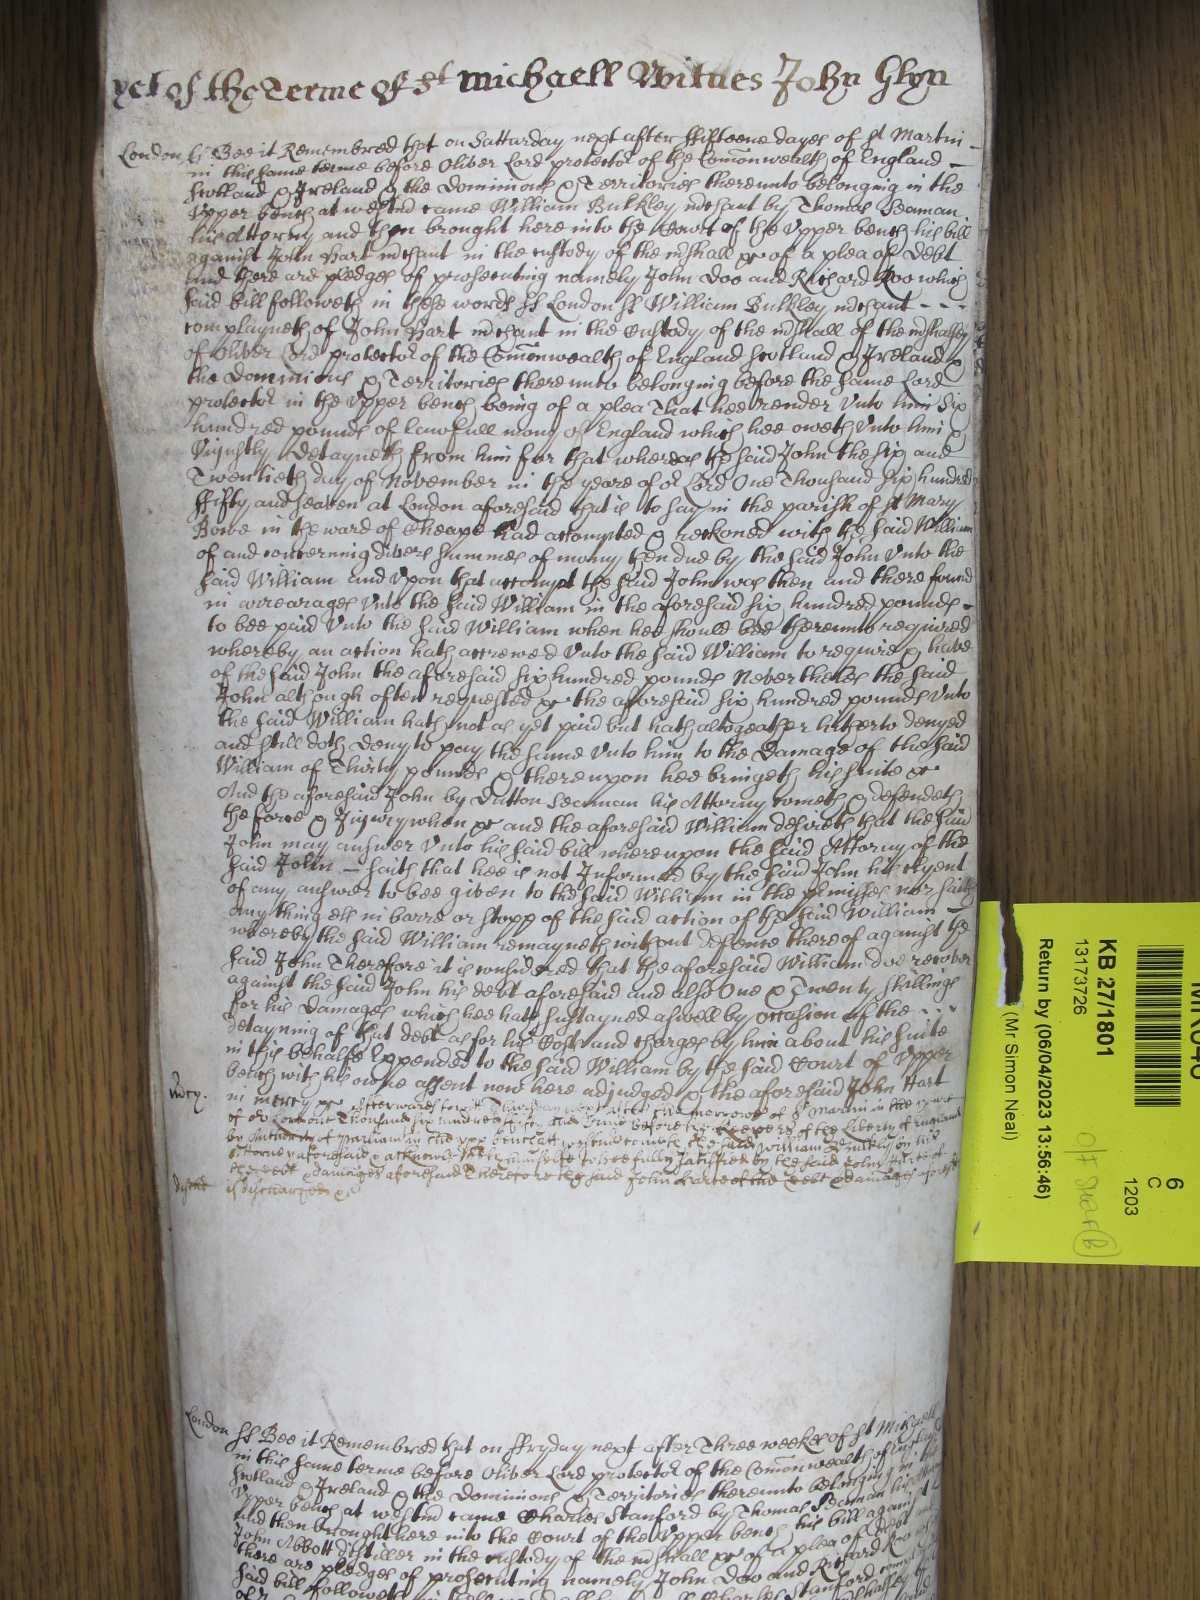 yet of the Terme of St Michaell Witnes John Glyn
London ss Bee it Remembred that on Satturday next after ffifteene dayes of St Martin
in this same terme before Oliver Lord protector of the Comonwealth of England
Scotland & Ireland & the Dominions & Territories thereunto belonging in the
Vpper bench at Westmr came William Bulkley mchant by Thomas Beaman
his Attorny and then brought here into the Court of the Vpper bench his bill
against John Hart mchant in the custody of the mshall &c of a plea of Debt
and there are pledges of prosecuting namely John Doo and Richard Roo which
said bill followeth in these words ss London ss William Bulkley mchant
complayneth of John Hart mchant in the Custody of the mshall of the mshalsey
of Oliver Lord protector of the Comonwealth of England Scotland & Ireland &
the Dominions & Territories thereunto belonging before the same Lord
protector in the Vpper bench being of a plea That hee render Vnto him Six
hundred pounds of lawfull mony of England which hee oweth Vnto him &
Vniustly detayneth from him for that whereas the said John the Six and
Twentieth day of November in the yeare of or Lord One Thousand Six hundred
ffifty and seaven at London aforesaid that is to say in the parish of St Mary
Bowe in the ward of Cheape had accompted & reckoned with the said William
of and concerning divers summes of mony then due by the said John Vnto the
said William and Vpon that accompt the said John was then and there found
in arrearages Vnto the said William in the aforesaid six hundred pounds
to bee paid Vnto the said William when hee should bee thereunto required
whereby an action hath accrewed Vnto the said William to require & have
of the said John the aforesaid six hundred pounds Nevertheles the said
John although often requested &c the aforesaid six hundred pounds Vnto
the said William hath not as yet paid but hath altogeather hitherto denyed
and still doth deny to pay the same Vnto him to the Damage of the said
William of Thirty pounds & thereupon hee bringeth his suite &c
And the aforesaid John by Dutton Seaman his Attorny cometh & defendeth
the force & Iniury when &c and the aforesaid William desireth that the said
John may answer Vnto his said bill whereupon the said Attorny of the
said John saith that hee is not Informed by the said John his Clyent
of any answer to bee given to the said William in the pmisses nor saith
any thing els in barre or stopp of the said action of the said William
whereby the said William remayneth without defence thereof against the
said John Therefore it is considered that the aforesaid William doe recover
against the said John his debt aforesaid and also One & Twenty shillings
for his Damages which hee hath sustayned aswell by occasion of the
detayning of that debt as for his Costs and charges by him about his suite
in this behalfe Expended to the said William by the said Court of Vpper
bench with his owne assent now here adjudged & the aforesaid John Hart
mercy. in mercy &c Afterwards towit Thursday next after the morrowe of St Martin in the yeare
of or Lord one Thousand six hundred fifty and Nine before the Keepers of the Liberty of England
by Authority of Parliamt in the vpp bench att westmr cometh the said William Bulkley by his
Attorney aforesaid & acknowledgeth himselfe to bee fully satisfied by the said John Harte of
the debt & damages aforesaid Therefore the said John Harte of the debt & damages aforesd
is discharged &c
London ss Bee it Remembred that on ffryday next after Three weekes of St Michaell
in this same terme before Oliver Lord protector of the Comonwealth of England
Scotland & Ireland & the Dominions & Territories thereunto belonging in the
Vpper bench at westmr came Charles Stanford by Thomas Seaman his Attorny
and then brought here into the Court of the Vpper bench his bill against
John Abbott distiller in the custody of the mshall &c of a plea of debt and
there are pledges of prosecuting namely John Doo and Richard Roo which
said bill followeth in Charles Stanford
KB 27/1801
13173726
Return by (06/04/2023 13:56:46)
(Mr Simon Neal)
6
C
1203